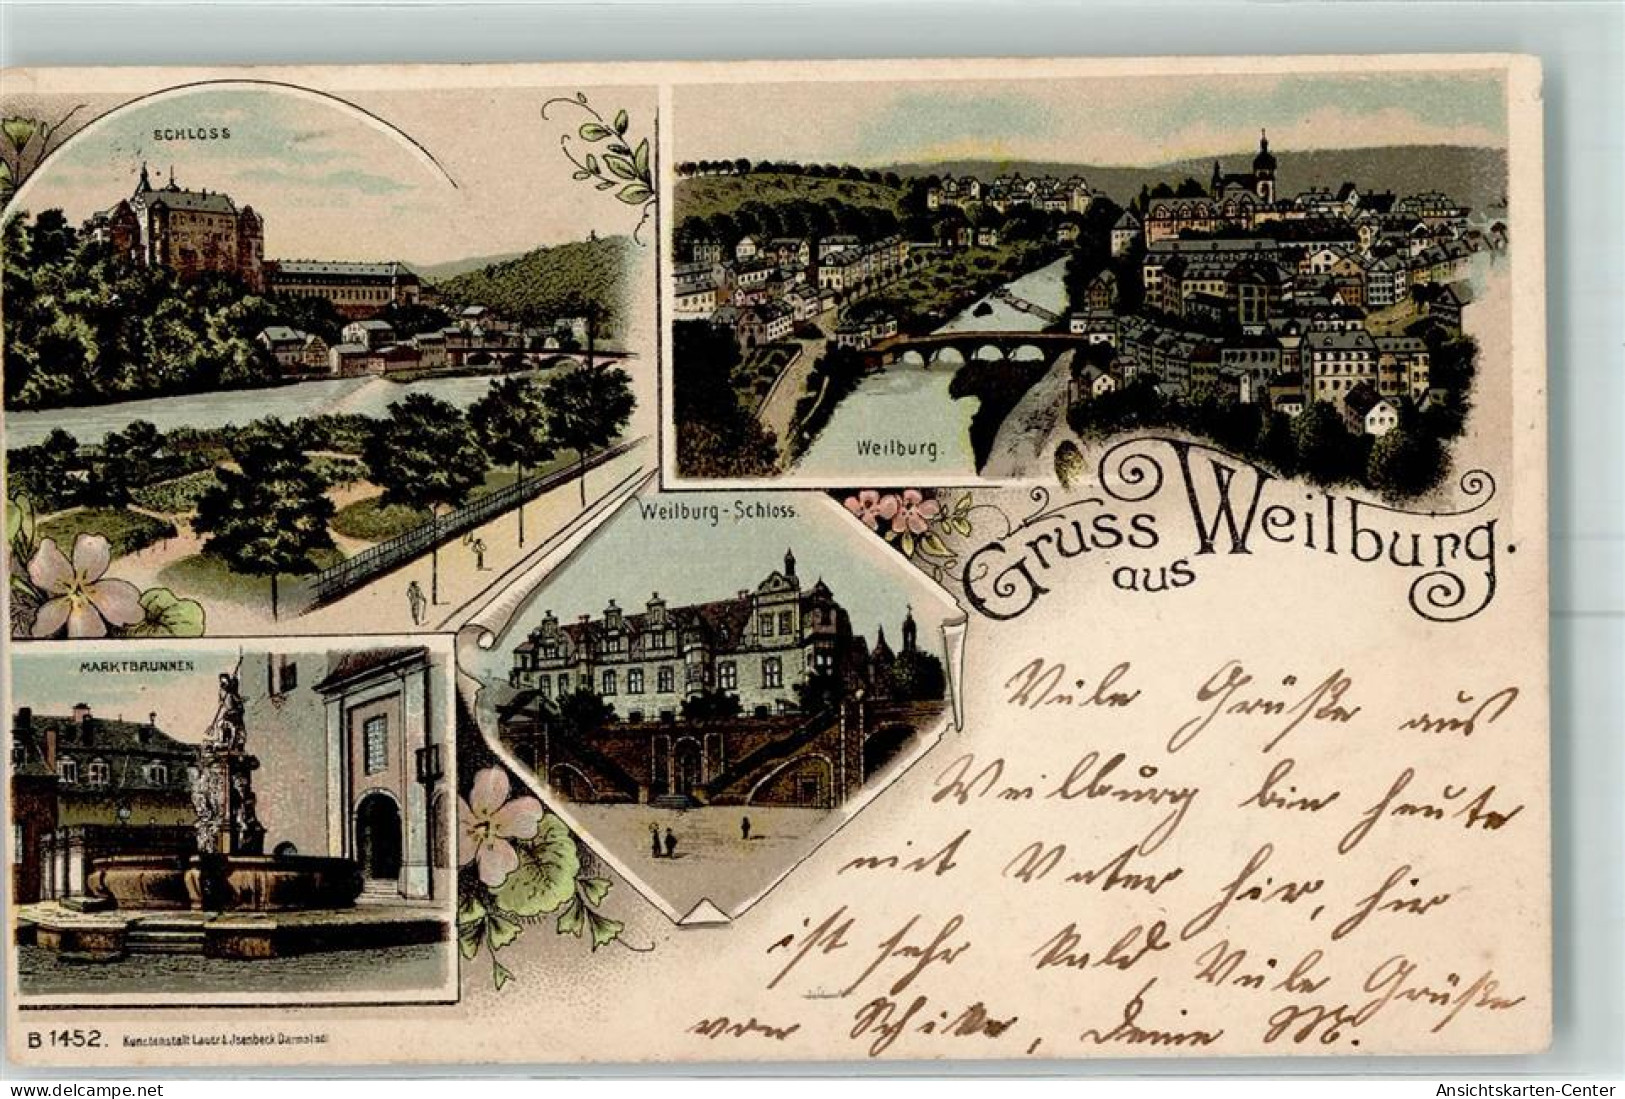 SCHLOSS
Weilburg.
Weilburg-Schloss.
Gruss aus Weilburg.
MARKTBRUNNEN
Viele Grüße aus
Weilburg bin heute
mit Vater hier, hier
ist sehr kalt, Viele Grüße
von
Deine M.
B 1452. Kunstanstalt Lautz & Jsenbeck Darmstadt
www.delcampe.net
Ansichtskarten-Center